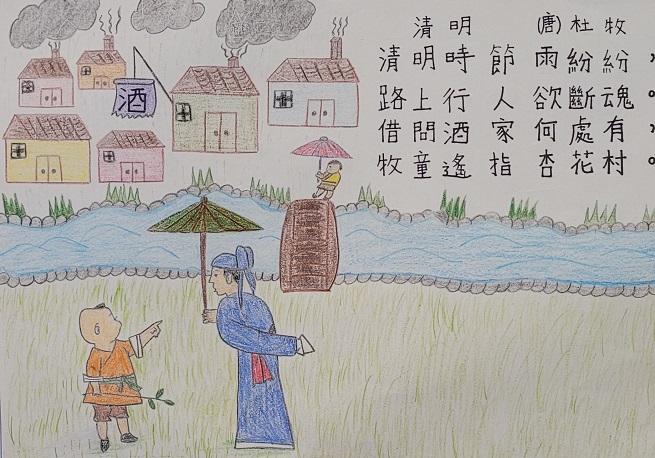 清明 (唐)杜牧
清明時節雨紛紛，
路上行人欲斷魂。
借問酒家何處有，
牧童遙指杏花村。
酒